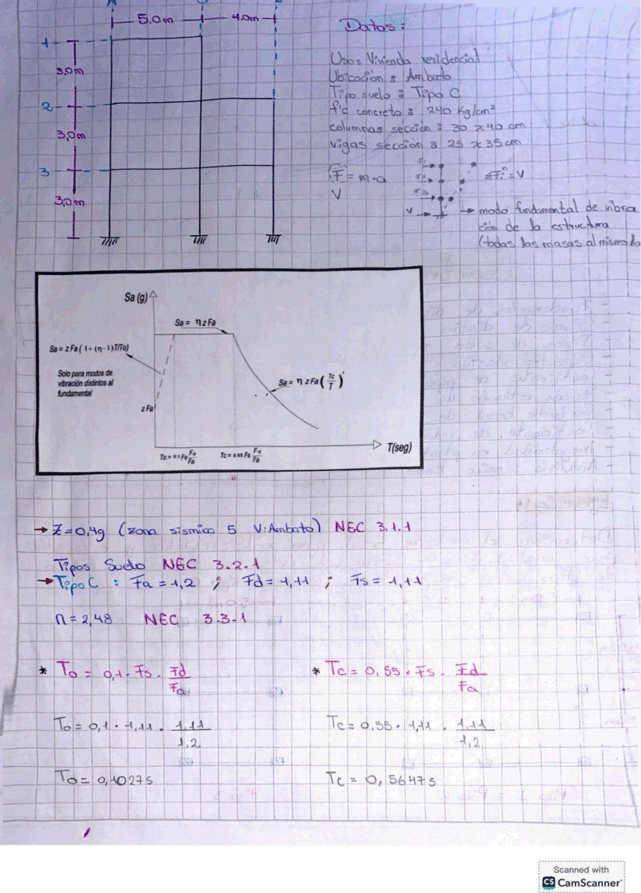 5.0m 4.0m
Datos:
1
3,0m
2
3,0m
3
3,0m
Uso: Vivienda residencial
Ubicación: Ambato
Tipo suelo: Tipo C
f'c concreto: 240 kg/cm²
columnas sección: 30 x 40 cm
vigas sección: 25 x 35 cm
F = m·a
V
ΣFi = V
V → modo fundamental de vibra
ción de la estructura
(todas las masas al mismo la
Sa (g)
Sa = η z Fa
Sa = z Fa ( 1 + (η -1)T/To)
Solo para modos de
vibración distintos al
fundamental
Sa = η z Fa (Tc/T)
z Fa
To = 0.1 Fs Fd/Fa
Tc = 0.55 Fs Fd/Fa
T(seg)
→ Z=0,4g (zona sismica 5 V:Ambato) NEC 3.1.1
Tipos Suelo NEC 3.2.1
→ Tipo C : Fa = 1,2 ; Fd = 1,11 ; Fs = 1,11
n = 2,48 NEC 3.3.1
* To = 0,1 · Fs · Fd/Fa
* Tc = 0,55 · Fs · Fd/Fa
To = 0,1 · 1,11 · 1,11/1,2
Tc = 0,55 · 1,11 · 1,11/1,2
To = 0,1027s
Tc = 0,5647s
Scanned with
CS CamScanner